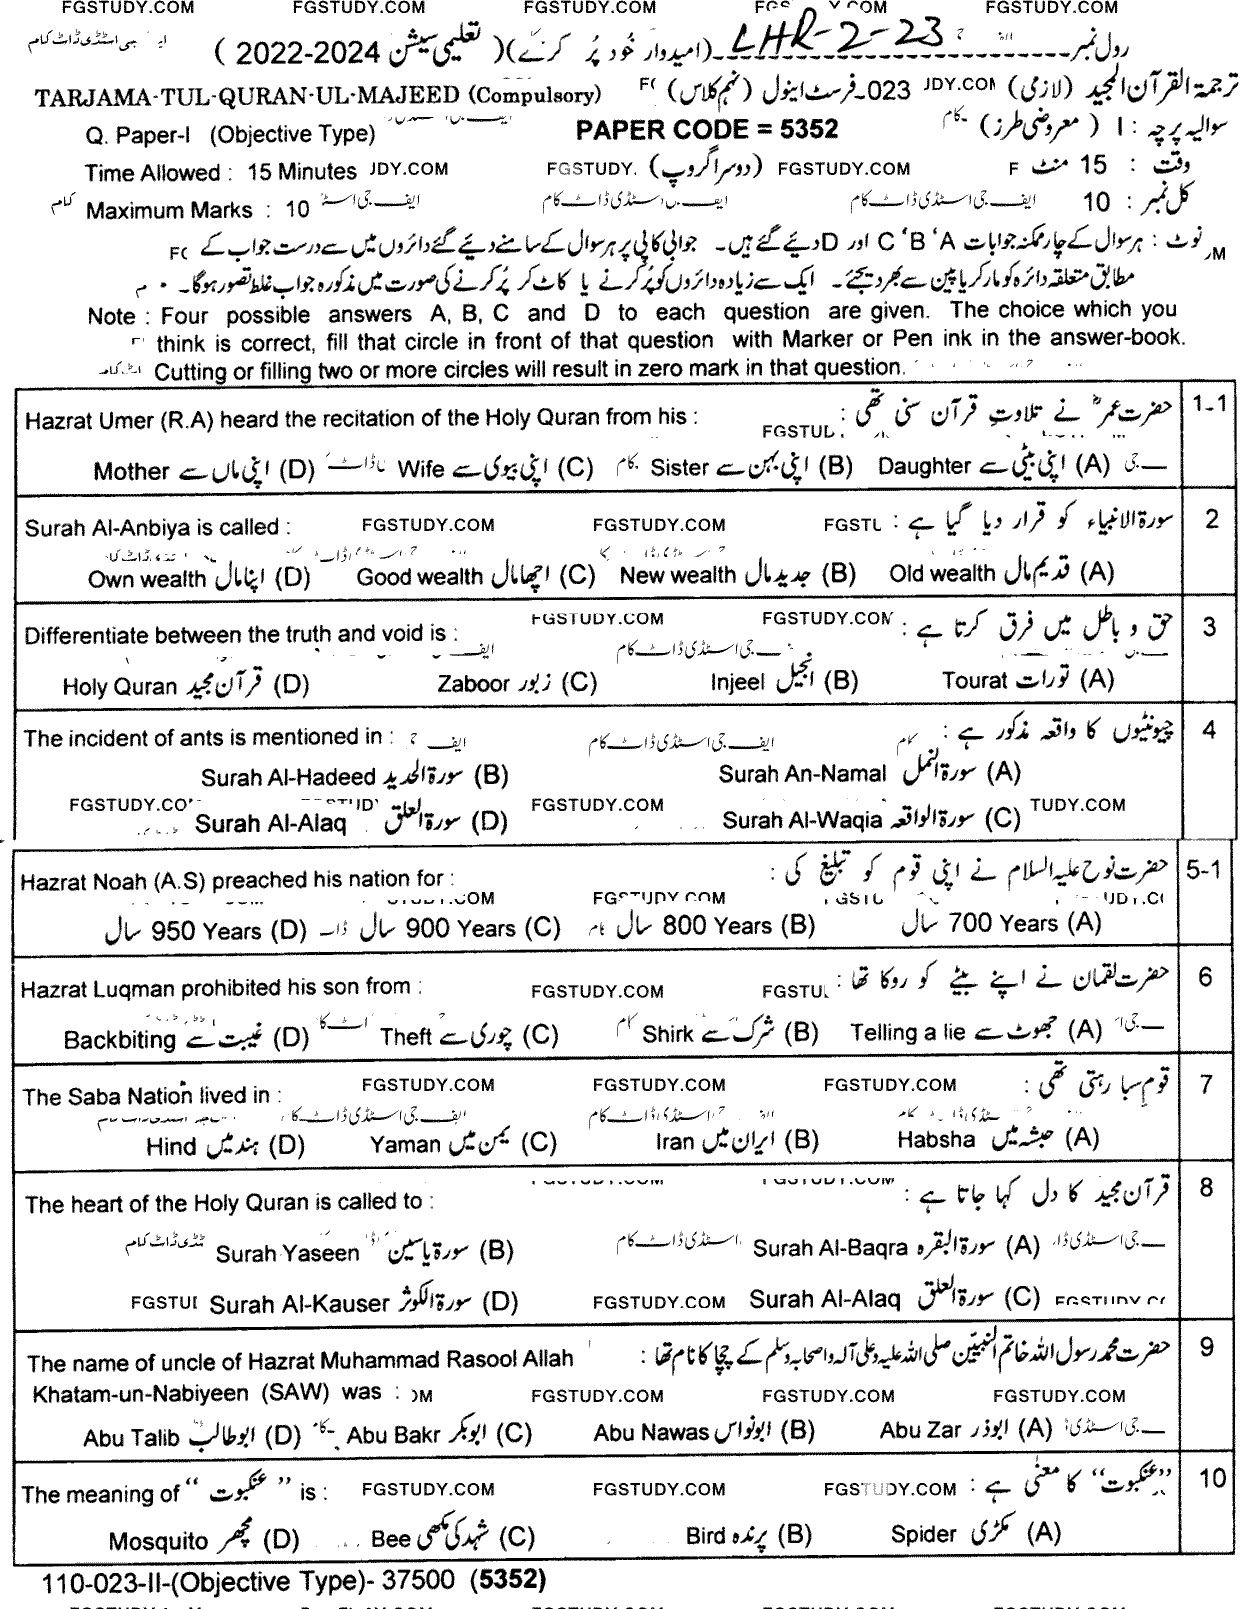 FGSTUDY.COM FGSTUDY.COM FGSTUDY.COM FGSTUDY.COM
رول نمبر LHR-2-23 (امیدوار خود پُر کرے) (تعلیمی سیشن 2022-2024)
ترجمۃ القرآن المجید (لازمی) JDY.COM 023-فرسٹ اینول (نہم کلاس)
TARJAMA-TUL-QURAN-UL-MAJEED (Compulsory)
سوالیہ پرچہ : I (معروضی طرز) PAPER CODE = 5352
Q. Paper-I (Objective Type)
وقت : 15 منٹ FGSTUDY.COM (دوسرا گروپ) FGSTUDY. JDY.COM
Time Allowed : 15 Minutes
کل نمبر : 10 ایف جی اسٹڈی ڈاٹ کام
Maximum Marks : 10
نوٹ : ہر سوال کے چار ممکنہ جوابات A‘ B‘ C اور D دیئے گئے ہیں۔ جوابی کاپی پر ہر سوال کے سامنے دیئے گئے دائروں میں سے درست جواب کے
مطابق متعلقہ دائرہ کو مارکر یا پین سے بھر دیجئے۔ ایک سے زیادہ دائروں کو پُر کرنے یا کاٹ کر پُر کرنے کی صورت میں مذکورہ جواب غلط تصور ہوگا۔
Note : Four possible answers A, B, C and D to each question are given. The choice which you
think is correct, fill that circle in front of that question with Marker or Pen ink in the answer-book.
Cutting or filling two or more circles will result in zero mark in that question.
1-1 حضرت عمرؓ نے تلاوتِ قرآن سنی تھی :
Hazrat Umer (R.A) heard the recitation of the Holy Quran from his :
(A) اپنی بیٹی سے Daughter (B) اپنی بہن سے Sister (C) اپنی بیوی سے Wife (D) اپنی ماں سے Mother
2 سورۃ الانبیاء کو قرار دیا گیا ہے :
Surah Al-Anbiya is called : FGSTUDY.COM FGSTUDY.COM
(A) قدیم مال Old wealth (B) جدید مال New wealth (C) اچھا مال Good wealth (D) اپنا مال Own wealth
3 حق و باطل میں فرق کرتا ہے :
Differentiate between the truth and void is :
(A) تورات Tourat (B) انجیل Injeel (C) زبور Zaboor (D) قرآن مجید Holy Quran
4 چیونٹیوں کا واقعہ مذکور ہے :
The incident of ants is mentioned in :
(A) سورۃ النمل Surah An-Namal (B) سورۃ الحدید Surah Al-Hadeed
FGSTUDY.COM
(C) سورۃ الواقعہ Surah Al-Waqia (D) سورۃ العلق Surah Al-Alaq
5-1 حضرت نوح علیہ السلام نے اپنی قوم کو تبلیغ کی :
Hazrat Noah (A.S) preached his nation for :
(A) 700 Years سال (B) 800 Years سال (C) 900 Years سال (D) 950 Years سال
6 حضرت لقمان نے اپنے بیٹے کو روکا تھا :
Hazrat Luqman prohibited his son from : FGSTUDY.COM
(A) جھوٹ سے Telling a lie (B) شرک سے Shirk (C) چوری سے Theft (D) غیبت سے Backbiting
7 قومِ سبا رہتی تھی :
The Saba Nation lived in : FGSTUDY.COM FGSTUDY.COM FGSTUDY.COM
(A) حبشہ میں Habsha (B) ایران میں Iran (C) یمن میں Yaman (D) ہند میں Hind
8 قرآن مجید کا دل کہا جاتا ہے :
The heart of the Holy Quran is called to :
(A) سورۃ البقرہ Surah Al-Baqra (B) سورۃ یاسین Surah Yaseen
(C) سورۃ العلق Surah Al-Alaq FGSTUDY.COM (D) سورۃ الکوثر Surah Al-Kauser
9 حضرت محمد رسول اللہ خاتم النبیّین صلی اللہ علیہ وعلیٰ آلہ واصحابہ وسلم کے چچا کا نام تھا :
The name of uncle of Hazrat Muhammad Rasool Allah
Khatam-un-Nabiyeen (SAW) was : FGSTUDY.COM FGSTUDY.COM FGSTUDY.COM
(A) ابوذر Abu Zar (B) ابونواس Abu Nawas (C) ابوبکر Abu Bakr (D) ابوطالب Abu Talib
10 ”عنکبوت“ کا معنیٰ ہے :
The meaning of “ عنکبوت ” is : FGSTUDY.COM FGSTUDY.COM FGSTUDY.COM
(A) مکڑی Spider (B) پرندہ Bird (C) شہد کی مکھی Bee (D) مچھر Mosquito
110-023-II-(Objective Type)- 37500 (5352)